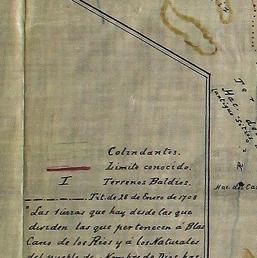 Colindantes.
Limite conocido.
I Terrenos Baldios.
Tit. de 28 de Enero de 1708
"Las tierras que hay desde las que
dividen las que pertenecen á Blas
Cano de los Rios y á los Naturales
del Pueblo de Nombre de Dios has
Ter
Hac. de
(antigua